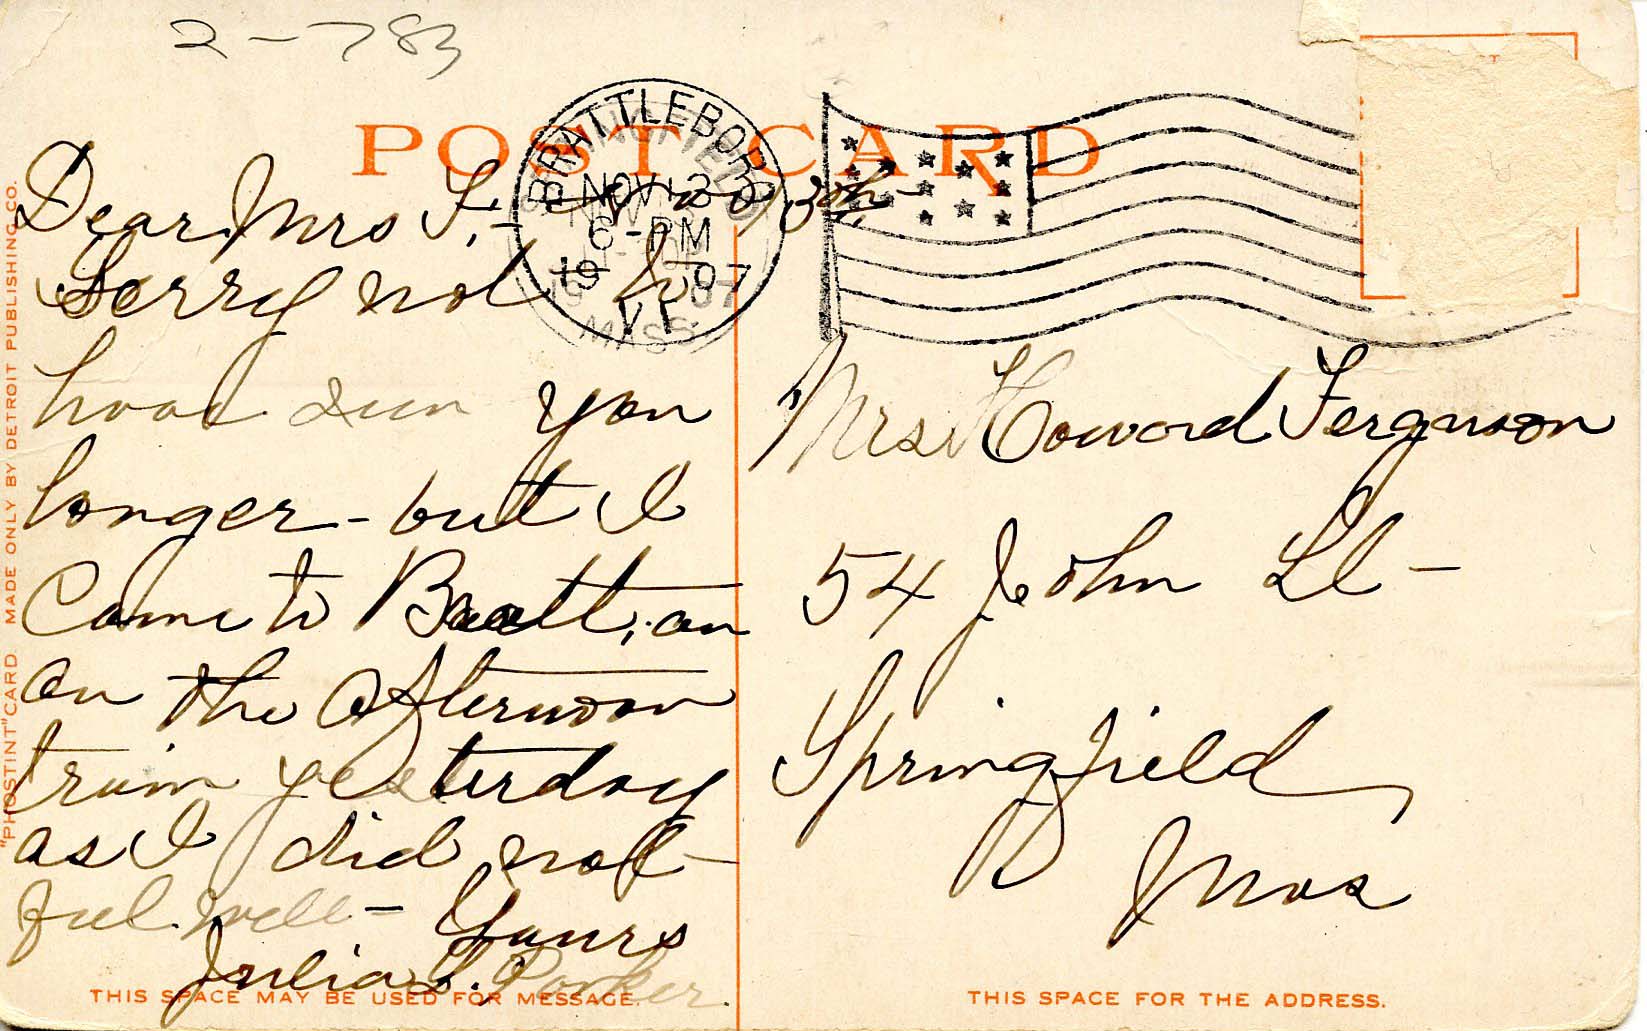 2-783
POST CARD
BRATTLEBORO
NOV 13
6-PM
1907
VT.
MASS.
Dear Mrs F,- Nov 13th-
Sorry not to
have seen you
longer - but I
Came to Bratt, on
on the afternoon
train yesterday
as I did not
feel well - Yours
Julia S. Parker.
THIS SPACE MAY BE USED FOR MESSAGE.
"PHOSTINT" CARD MADE ONLY BY DETROIT PUBLISHING CO.
Mrs Howard Ferguson
54 John St -
Springfield
Mas
THIS SPACE FOR THE ADDRESS.